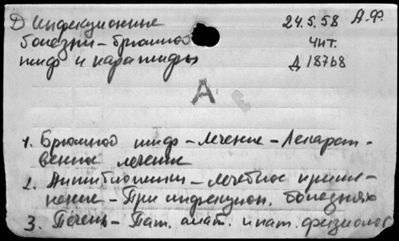 Д Инфекционные
болезни – брюшной
тиф и паратифы
24.5.58 А.Ф.
Чит.
Д 18768
А
1. Брюшной тиф – Лечение – Лекарст-
венное лечение
2. Антибиотики – лечебное приме-
нение – При инфекцион. болезнях
3. Печень – Пат. анат. и пат. физиолог